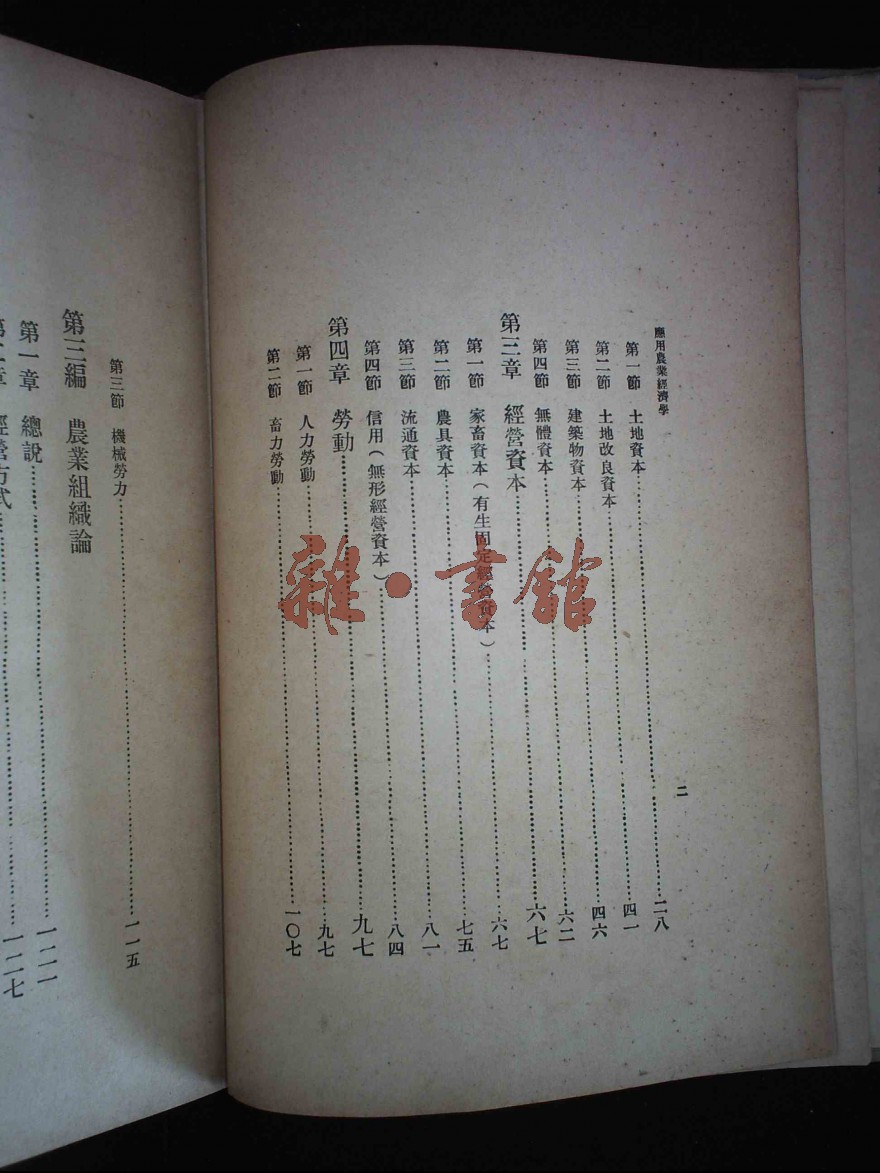 應用農業經濟學
二
第一節 土地資本……二八
第二節 土地改良資本……四一
第三節 建築物資本……四六
第四節 無體資本……六二
第三章 經營資本……六七
第一節 家畜資本(有生固定經營資本)……六七
第二節 農具資本……七五
第三節 流通資本……八一
第四節 信用(無形經營資本)……八四
第四章 勞動……九七
第一節 人力勞動……九七
第二節 畜力勞動……一〇七
第三節 機械勞力……一一五
第三編 農業組織論
第一章 總說……一二一
第二章 經營方式……一二七
雜·書館